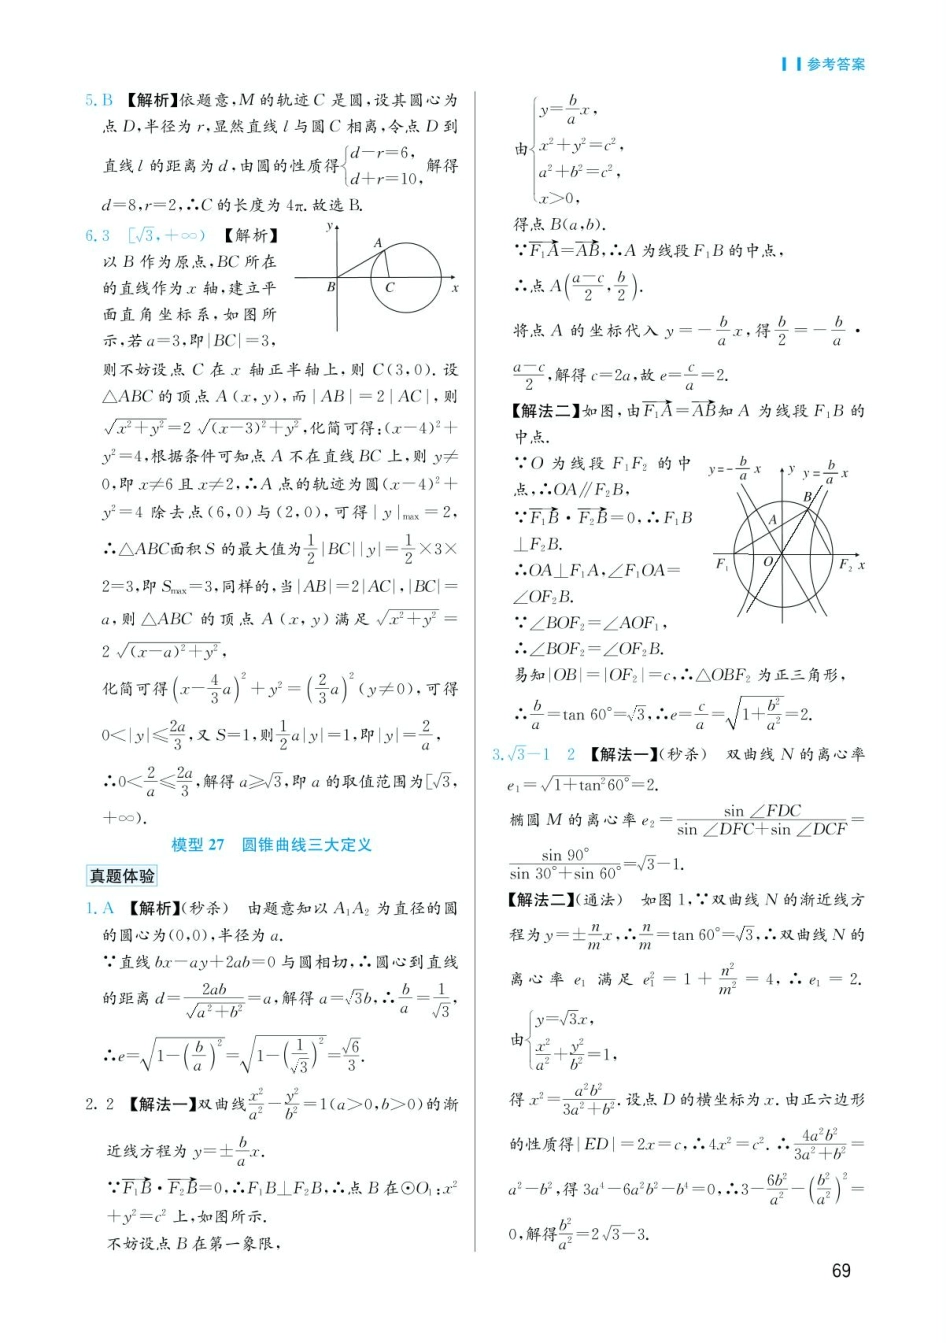 参考答案
5. B 【解析】依题意,M 的轨迹 C 是圆,设其圆心为
点 D,半径为 r,显然直线 l 与圆 C 相离,令点 D 到
直线 l 的距离为 d,由圆的性质得{d-r=6, d+r=10, 解得
d=8,r=2,∴C 的长度为 4π. 故选 B.
6. 3 [√3,+∞) 【解析】
以 B 作为原点,BC 所在
的直线作为 x 轴,建立平
面直角坐标系,如图所
示,若 a=3,即|BC|=3,
y
A
B
C
x
则不妨设点 C 在 x 轴正半轴上,则 C(3,0). 设
△ABC 的顶点 A(x,y),而|AB|=2|AC|,则
√(x²+y²)=2√((x-3)²+y²),化简可得:(x-4)²+
y²=4,根据条件可知点 A 不在直线 BC 上,则 y≠
0,即 x≠6 且 x≠2,∴A 点的轨迹为圆(x-4)²+
y²=4 除去点(6,0)与(2,0),可得|y|max=2,
∴△ABC面积 S 的最大值为 1/2|BC||y|=1/2×3×
2=3,即 Smax=3,同样的,当|AB|=2|AC|,|BC|=
a,则△ABC 的顶点 A(x,y)满足√(x²+y²)=
2√((x-a)²+y²),
化简可得(x-4/3a)²+y²=(2/3a)²(y≠0),可得
0<|y|≤2a/3,又 S=1,则1/2a|y|=1,即|y|=2/a,
∴0<2/a≤2a/3,解得 a≥√3,即 a 的取值范围为[√3,
+∞).
模型 27 圆锥曲线三大定义
真题体验
1. A 【解析】(秒杀) 由题意知以 A₁A₂ 为直径的圆
的圆心为(0,0),半径为 a.
∵直线 bx-ay+2ab=0 与圆相切,∴圆心到直线
的距离 d=2ab/√(a²+b²)=a,解得 a=√3b,∴b/a=1/√3,
∴e=√(1-(b/a)²)=√(1-(1/√3)²)=√6/3.
2. 2 【解法一】双曲线x²/a²-y²/b²=1(a>0,b>0)的渐
近线方程为 y=±b/a x.
∵F₁B·F₂B=0,∴F₁B⊥F₂B,∴点 B 在⊙O₁:x²
+y²=c² 上,如图所示.
不妨设点 B 在第一象限,
由{y=b/a x, x²+y²=c², a²+b²=c², x>0,
得点 B(a,b).
∵F₁A=AB,∴A 为线段 F₁B 的中点,
∴点 A((a-c)/2,b/2).
将点 A 的坐标代入 y=-b/a x,得b/2=-b/a·
(a-c)/2,解得 c=2a,故 e=c/a=2.
【解法二】如图,由F₁A=AB知 A 为线段 F₁B 的
中点.
∵O 为线段 F₁F₂ 的中
点,∴OA∥F₂B,
∵F₁B·F₂B=0,∴F₁B
⊥F₂B.
∴OA⊥F₁A,∠F₁OA=
∠OF₂B.
∵∠BOF₂=∠AOF₁,
y=-b/a x
y
y=b/a x
B
A
F₁
O
F₂ x
∴∠BOF₂=∠OF₂B.
易知|OB|=|OF₂|=c,∴△OBF₂ 为正三角形,
∴b/a=tan 60°=√3,∴e=c/a=√(1+b²/a²)=2.
3. √3-1 2 【解法一】(秒杀) 双曲线 N 的离心率
e₁=√(1+tan²60°)=2.
椭圆 M 的离心率 e₂=sin∠FDC/(sin∠DFC+sin∠DCF)=
sin 90°/(sin 30°+sin 60°)=√3-1.
【解法二】(通法) 如图 1,∵双曲线 N 的渐近线方
程为 y=±n/m x,∴n/m=tan 60°=√3,∴双曲线 N 的
离心率 e₁ 满足 e₁²=1+n²/m²=4,∴e₁=2.
由{y=√3x, x²/a²+y²/b²=1,
得 x²=a²b²/(3a²+b²). 设点 D 的横坐标为 x. 由正六边形
的性质得|ED|=2x=c,∴4x²=c². ∴4a²b²/(3a²+b²)=
a²-b²,得 3a⁴-6a²b²-b⁴=0,∴3-6b²/a²-(b²/a²)²=
0,解得b²/a²=2√3-3.
69